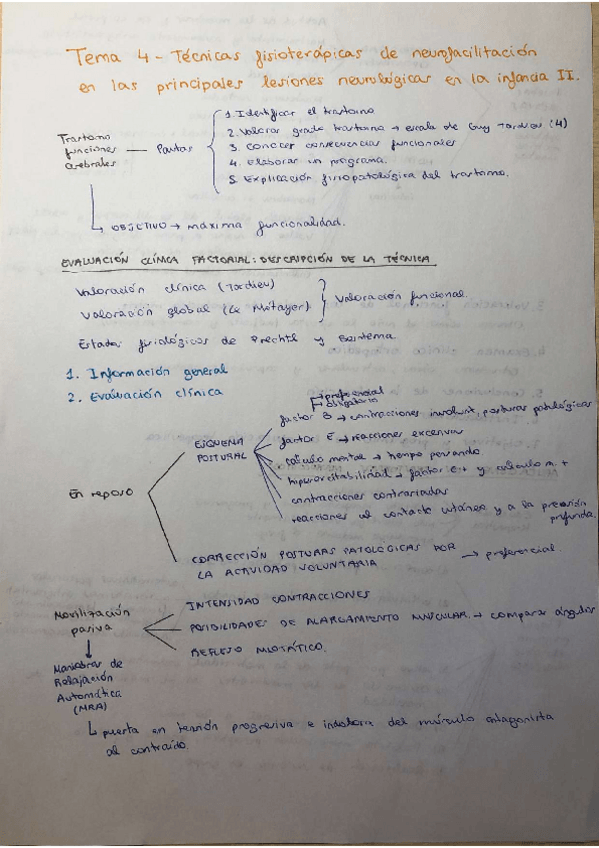 Tema 4 - Técnicas fisioterápicas de neurofacilitación
en las principales lesiones neurológicas en la infancia II.
Trastorno
funciones
cerebrales
Pautas
1. Identificar el trastorno
2. Valorar grado trastorno → escala de Guy Tardieu (4)
3. Conocer consecuencias funcionales
4. Elaborar un programa.
5. Explicación fisiopatológica del trastorno.
OBJETIVO → máxima funcionalidad.
EVALUACIÓN CLÍNICA FACTORIAL: DESCRIPCIÓN DE LA TÉCNICA
Valoración clínica (Tardieu)
Valoración global (Le Métayer)
Valoración funcional.
Estados fisiológicos de Prechtl y Beintema
1. Información general
2. Evaluación clínica
En reposo
ESQUEMA
POSTURAL
preferencial
obligatorio
factor B → contracciones involunt, posturas patológicas
factor E → reacciones excesivas
cálculo mental → tiempo pensando
hiperexcitabilidad → factor E + y cálculo m. +
contracciones contrariadas
reacciones al contacto cutáneo y a la presión
profunda.
CORRECCIÓN POSTURAS PATOLÓGICAS POR
LA ACTIVIDAD VOLUNTARIA → preferencial.
Movilización
pasiva
INTENSIDAD CONTRACCIONES
POSIBILIDADES DE ALARGAMIENTO MUSCULAR. → comparar ángulos
REFLEJO MIOTÁTICO.
Maniobras de
Relajación
Automática
(MRA)
puesta en tensión progresiva e indolora del músculo antagonista
al contraído.